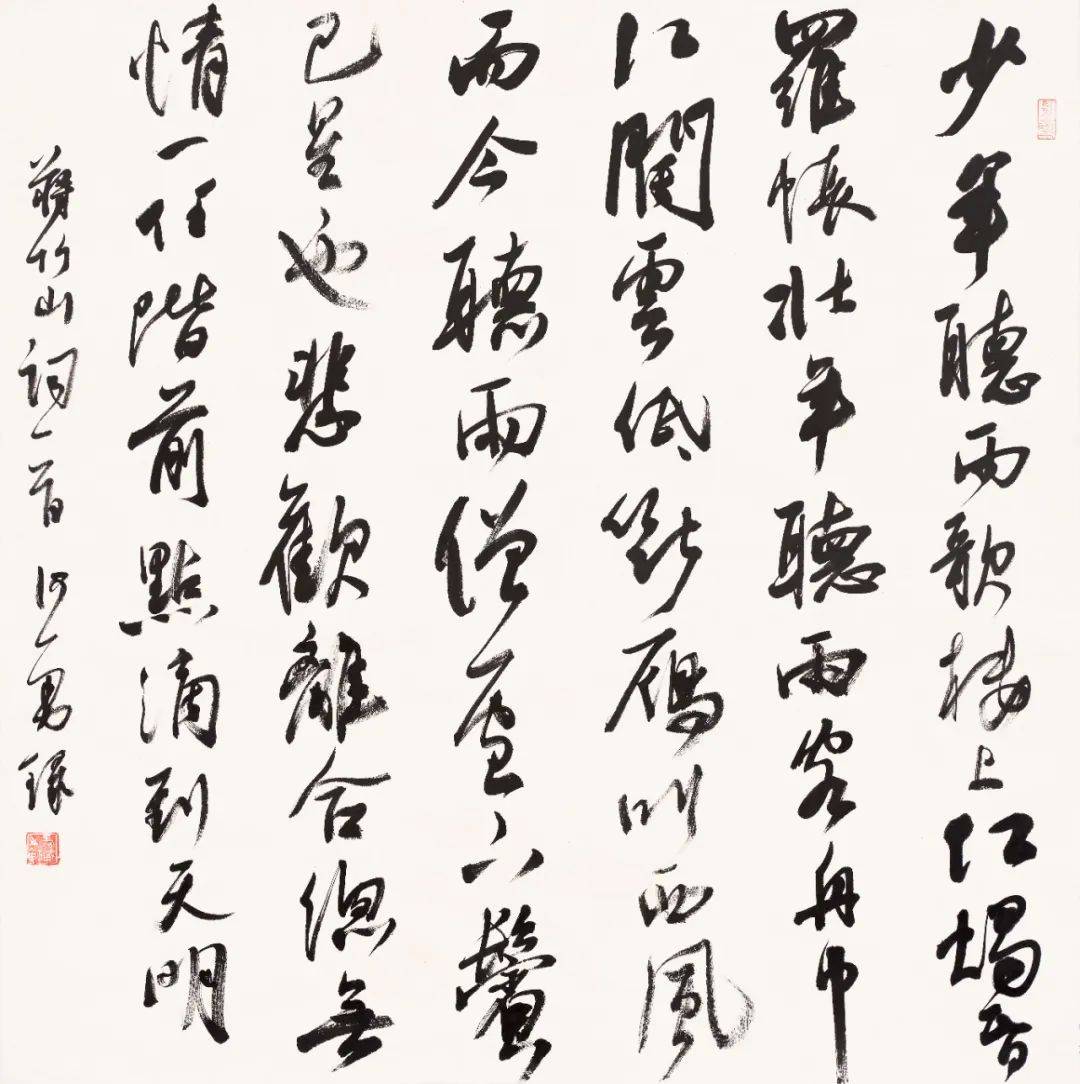 少年聽雨歌樓上紅燭昏
羅帳壯年聽雨客舟中
江闊雲低斷鴈叫西風
而今聽雨僧廬下鬢
已星也悲歡離合總無
情一任階前點滴到天明
蔣竹山詞一首 錄